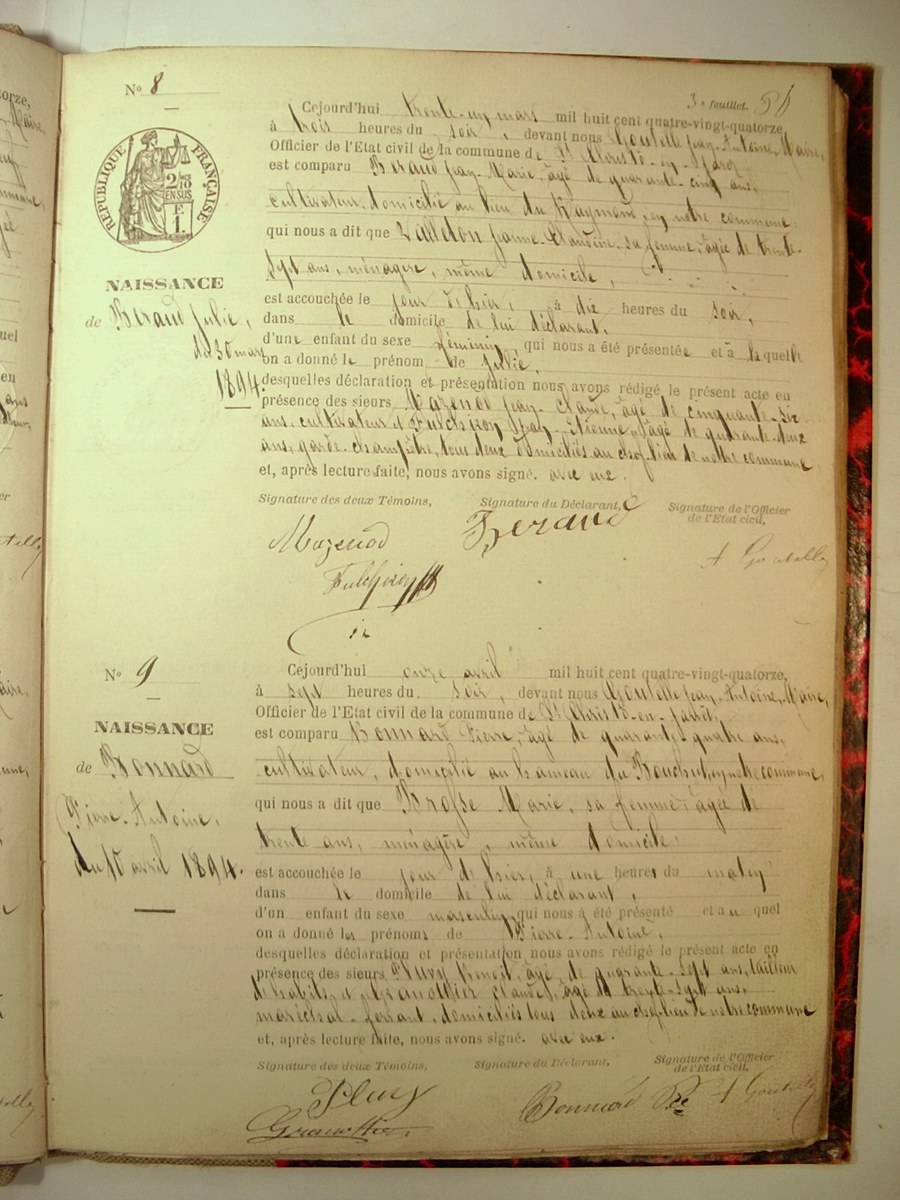 3e feuillet.
Nº 8
Cejourd'hui trente-un mars mil huit cent quatre-vingt-quatorze
à trois heures du soir, devant nous Goutelle Jean-Antoine, Maire,
Officier de l'Etat civil de la commune de
est comparu Béraud Jean-Marie, âgé de quarante-cinq ans,
cultivateur, domicilié au lieu du Raymond, en notre commune
qui nous a dit que Jeanne-Claudine, sa femme, âgée de trente-
sept ans, ménagère, même domicile,
est accouchée le jour de hier, à dix heures du soir,
dans le domicile de lui déclarant,
d'une enfant du sexe féminin qui nous a été présentée et à laquelle
on a donné le prénom de Julie,
desquelles déclaration et présentation nous avons rédigé le présent acte en
présence des sieurs Mazenod Jean-Claude, âgé de cinquante-six
ans, cultivateur et Fulchiron Etienne, âgé de quarante-deux
ans, garde-champêtre, tous deux domiciliés au chef-lieu de notre commune
et, après lecture faite, nous avons signé. avec eux.
RÉPUBLIQUE FRANÇAISE
2/10 EN SUS
F 1.
NAISSANCE
de Béraud Julie,
du 30 mars
1894.
Signature des deux Témoins,
Signature du Déclarant,
Signature de l'Officier
de l'Etat civil,
Mazenod
Beraud
Goutelle
Fulchiron
Nº 9
Cejourd'hui onze avril mil huit cent quatre-vingt-quatorze,
à sept heures du soir, devant nous Goutelle Jean-Antoine, Maire,
Officier de l'Etat civil de la commune de
est comparu Bonnard Pierre, âgé de quarante-quatre ans,
cultivateur, domicilié au hameau du Bouchet, en notre commune,
qui nous a dit que Brosse Marie, sa femme, âgée de
trente ans, ménagère, même domicile,
est accouchée le jour de hier, à une heures du matin
dans le domicile de lui déclarant,
d'un enfant du sexe masculin qui nous a été présenté et auquel
on a donné les prénoms de Pierre-Antoine,
desquelles déclaration et présentation nous avons rédigé le présent acte en
présence des sieurs Pluvy Benoit, âgé de quarante-sept ans, tailleur
d'habits, et Claude, âgé de trente-sept ans,
maréchal-ferrant, domiciliés tous deux au chef-lieu de notre commune
et, après lecture faite, nous avons signé. avec eux.
NAISSANCE
de Bonnard
Pierre-Antoine,
du 10 avril 1894.
Signature des deux Témoins,
Signature du Déclarant,
Signature de l'Officier
de l'Etat civil,
Pluvy
Bonnard
Goutelle